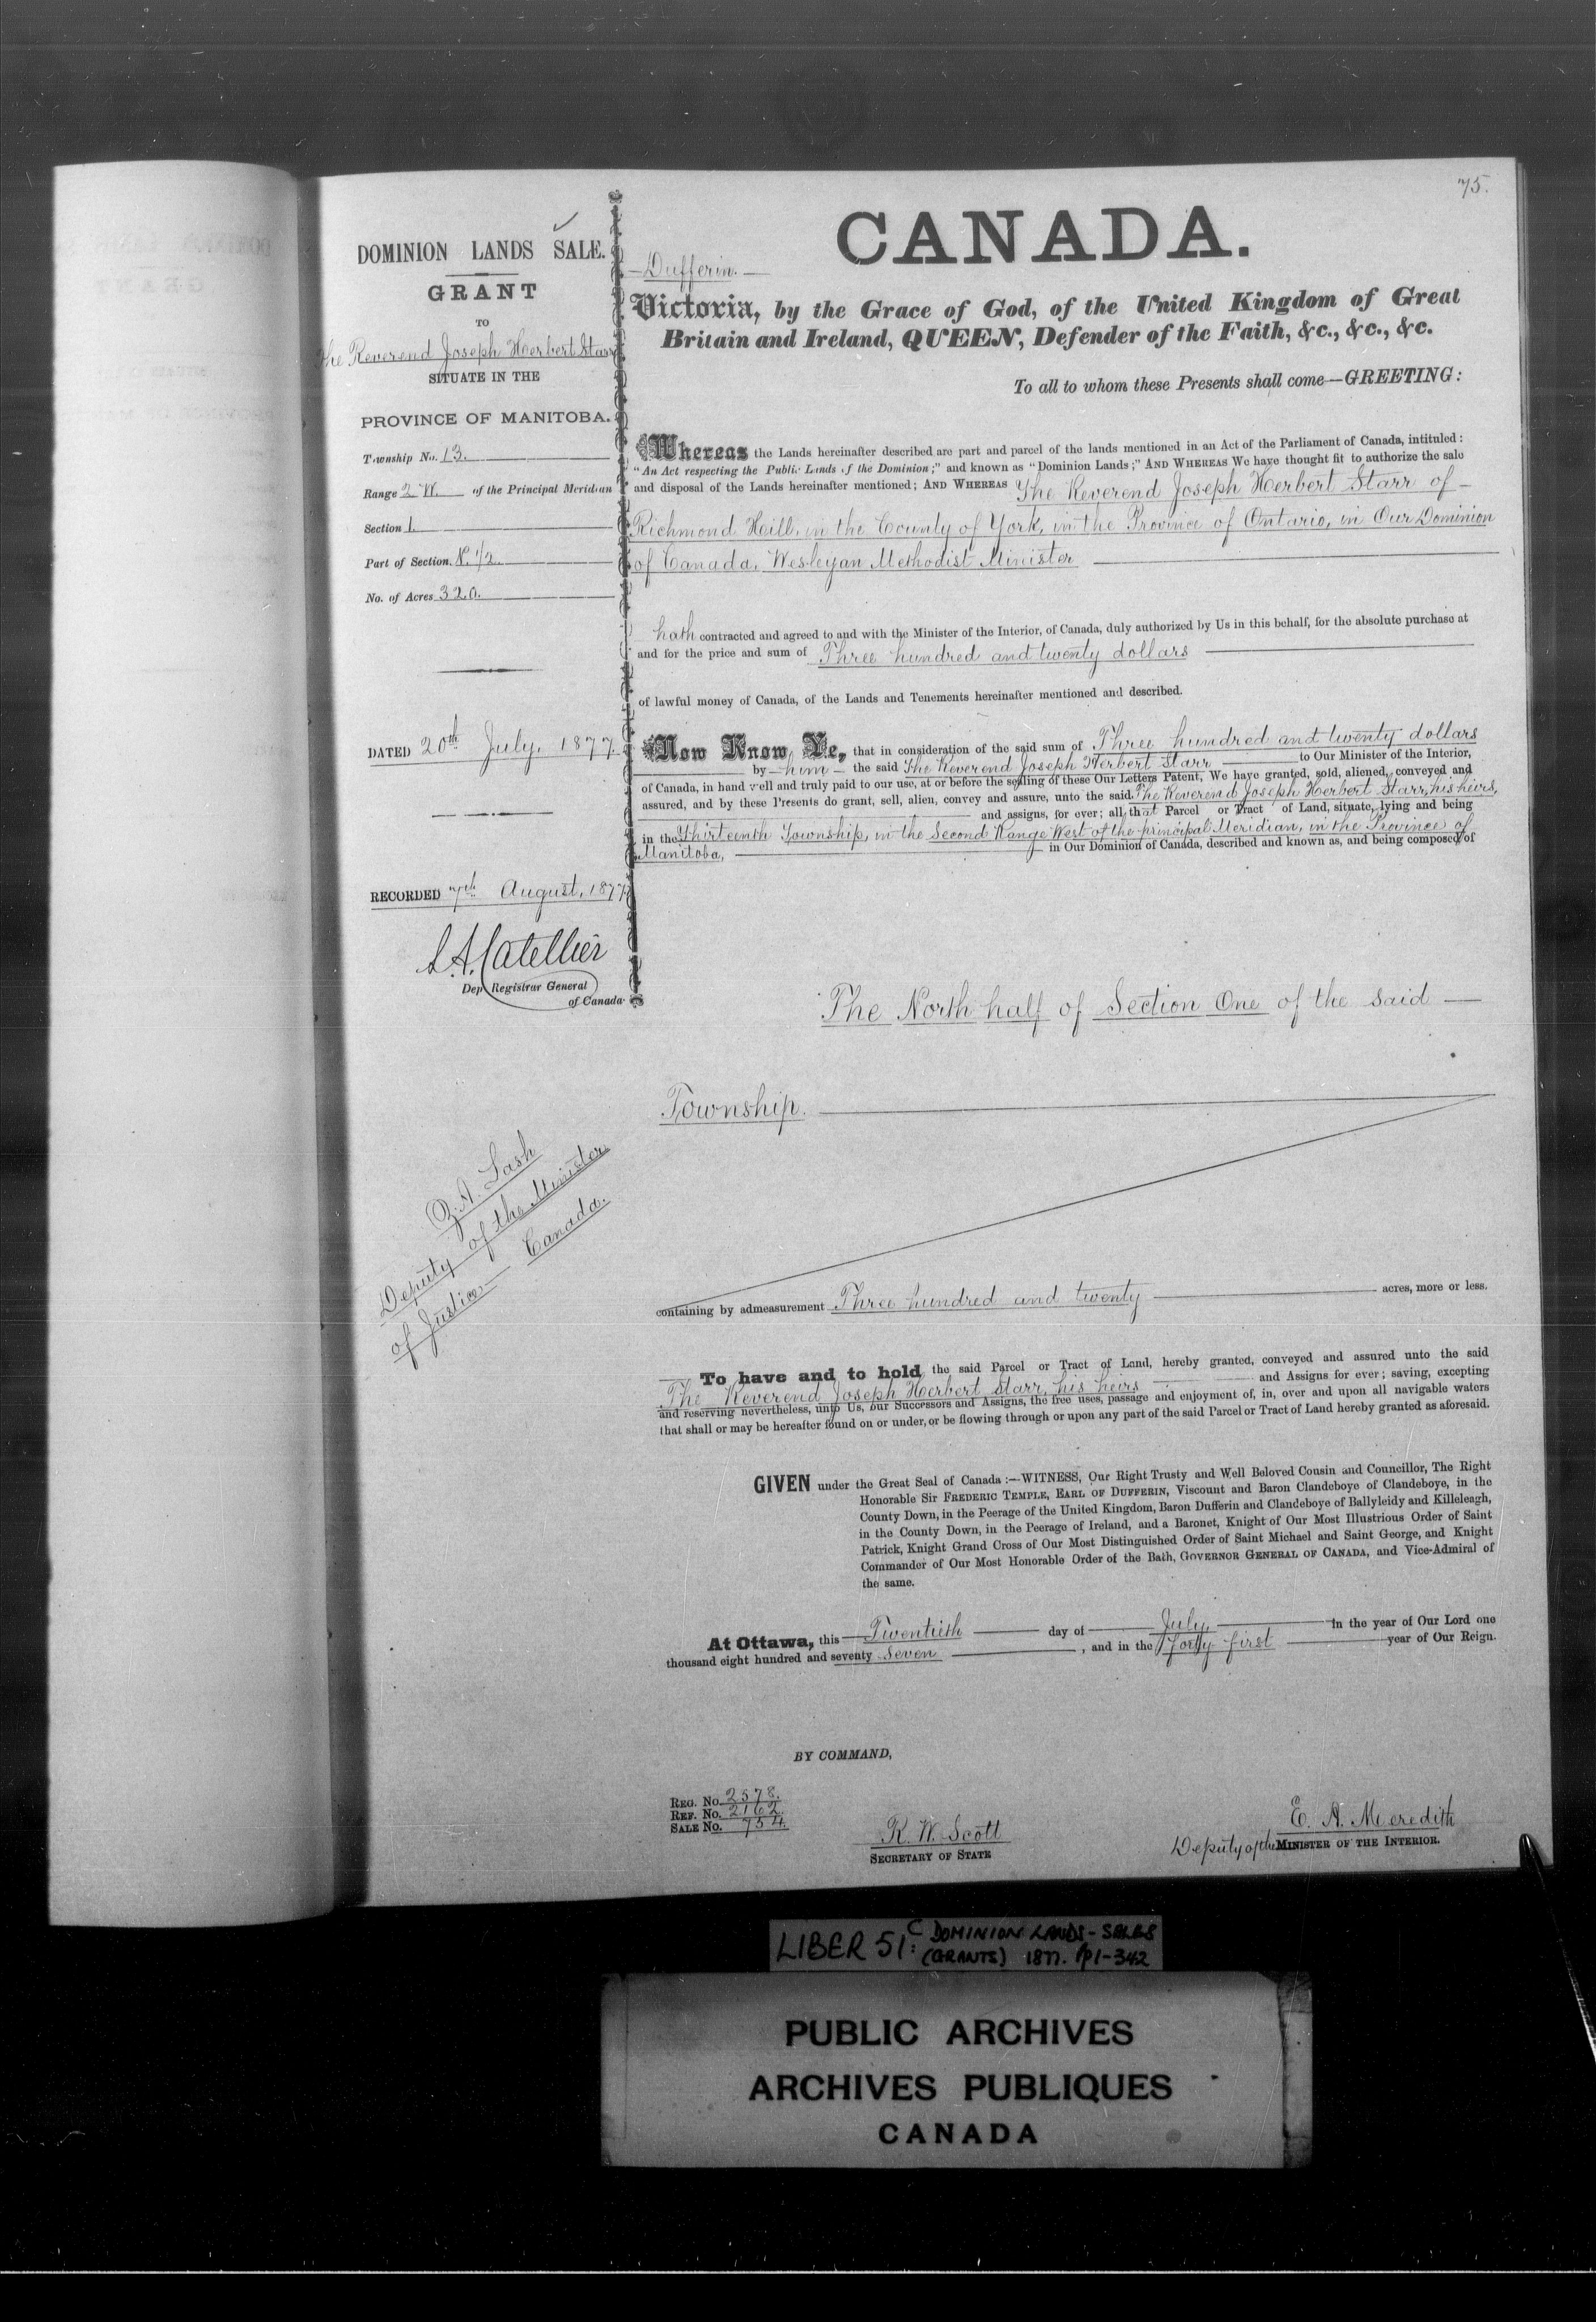 75.
DOMINION LANDS SALE.
GRANT
TO
The Reverend Joseph Herbert Starr
SITUATE IN THE
PROVINCE OF MANITOBA.
Township No. 13.
Range 2 W. of the Principal Meridian
Section 1
Part of Section. N. 1/2.
No. of Acres 320.
DATED 20th July, 1877.
RECORDED 7th August, 1877
L.A. Catellier
Dep Registrar General
of Canada.
Z. A. Lash
Deputy of the Minister
of Justice — Canada.
CANADA.
Dufferin.
Victoria, by the Grace of God, of the United Kingdom of Great
Britain and Ireland, QUEEN, Defender of the Faith, &c., &c., &c.
To all to whom these Presents shall come—GREETING:
Whereas the Lands hereinafter described are part and parcel of the lands mentioned in an Act of the Parliament of Canada, intituled:
"An Act respecting the Public Lands of the Dominion;" and known as "Dominion Lands;" AND WHEREAS We have thought fit to authorize the sale
and disposal of the Lands hereinafter mentioned; AND WHEREAS The Reverend Joseph Herbert Starr of
Richmond Hill, in the County of York, in the Province of Ontario, in Our Dominion
of Canada, Wesleyan Methodist Minister
hath contracted and agreed to and with the Minister of the Interior, of Canada, duly authorized by Us in this behalf, for the absolute purchase at
and for the price and sum of Three hundred and twenty dollars
of lawful money of Canada, of the Lands and Tenements hereinafter mentioned and described.
Now Know Ye, that in consideration of the said sum of Three hundred and twenty dollars
by him the said The Reverend Joseph Herbert Starr to Our Minister of the Interior,
of Canada, in hand well and truly paid to our use, at or before the sealing of these Our Letters Patent, We have granted, sold, aliened, conveyed and
assured, and by these Presents do grant, sell, alien, convey and assure, unto the said The Reverend Joseph Herbert Starr, his heirs,
and assigns, for ever; all that Parcel or Tract of Land, situate, lying and being
in the Thirteenth Township, in the Second Range West of the principal Meridian, in the Province of
Manitoba, in Our Dominion of Canada, described and known as, and being composed of
The North half of Section One of the said
Township.
containing by admeasurement Three hundred and twenty acres, more or less.
To have and to hold the said Parcel or Tract of Land, hereby granted, conveyed and assured unto the said
The Reverend Joseph Herbert Starr, his heirs and Assigns for ever; saving, excepting
and reserving nevertheless, unto Us, our Successors and Assigns, the free uses, passage and enjoyment of, in, over and upon all navigable waters
that shall or may be hereafter found on or under, or be flowing through or upon any part of the said Parcel or Tract of Land hereby granted as aforesaid.
GIVEN under the Great Seal of Canada:—WITNESS, Our Right Trusty and Well Beloved Cousin and Councillor, The Right
Honorable Sir FREDERIC TEMPLE, EARL OF DUFFERIN, Viscount and Baron Clandeboye of Clandeboye, in the
County Down, in the Peerage of the United Kingdom, Baron Dufferin and Clandeboye of Ballyleidy and Killeleagh,
in the County Down, in the Peerage of Ireland, and a Baronet, Knight of Our Most Illustrious Order of Saint
Patrick, Knight Grand Cross of Our Most Distinguished Order of Saint Michael and Saint George, and Knight
Commander of Our Most Honorable Order of the Bath, GOVERNOR GENERAL OF CANADA, and Vice-Admiral of
the same.
At Ottawa, this Twentieth day of July, in the year of Our Lord one
thousand eight hundred and seventy Seven, and in the forty first year of Our Reign.
BY COMMAND,
REG. No. 2578.
REF. No. 2162.
SALE No. 754.
R. W. Scott
SECRETARY OF STATE
E. A. Meredith
Deputy of the MINISTER OF THE INTERIOR.
LIBER 51C: DOMINION LANDS - SALES
(GRANTS) 1877. pp1-342
PUBLIC ARCHIVES
ARCHIVES PUBLIQUES
CANADA